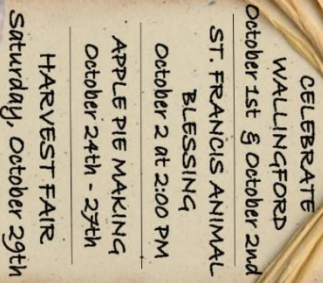 CELEBRATE
WALLINGFORD
October 1st & October 2nd
ST. FRANCIS ANIMAL
BLESSING
October 2 at 2:00 PM
APPLE PIE MAKING
October 24th - 27th
HARVEST FAIR
Saturday, October 29th